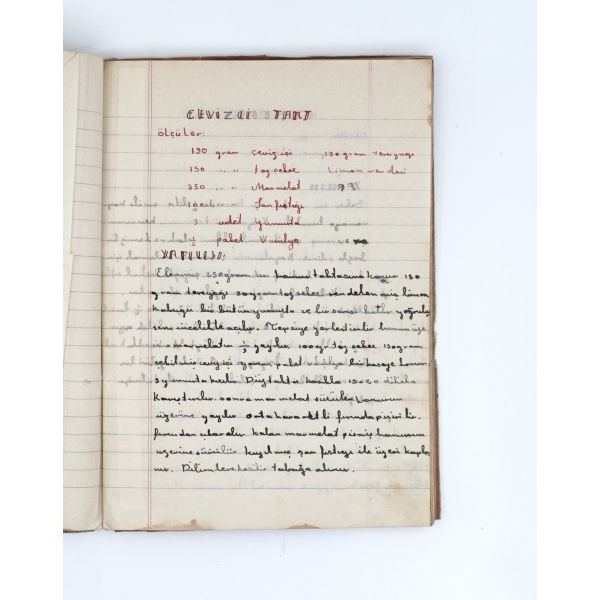 CEVİZLİ TART
ölçüler:
130 gram çeviz içi 150 gram tereyagı
150 " " toz şeker Limon rendesi
350 " " Marmelat
100 " " Şam fıstıgı
3 adet yumurta
½ paket Vanilya
YAPILIŞI:
Elenmiş 250 gram un hamur tahtasına konur 150
gram tereyağı 50 gram toz şeker rendelenmiş limon
kabuğu bir bütün yumurta ve bir sarısı katılır yoğrulur
incelikte açılır. Tepsiye yerleştirilir bunun üze
rine marmelatın ½ yayılır 100 gr toz şeker 130 gram
çekilmiş ceviz içi yarım paket bir kaseye konur
3 yumurta kırılır. kaşıkla 15-20 dakika
Karıştırılır. sonra marmelat sürülen hamurun
üzerine yayılır orta hararetli fırında pişirilir.
fırından çıkarılır kalan marmelat pişmiş hamurun
üzerine sürülür kıyılmış şam fıstıgı ile üzeri kapla
nır. Dilimlere kesilir tabağa alınır.